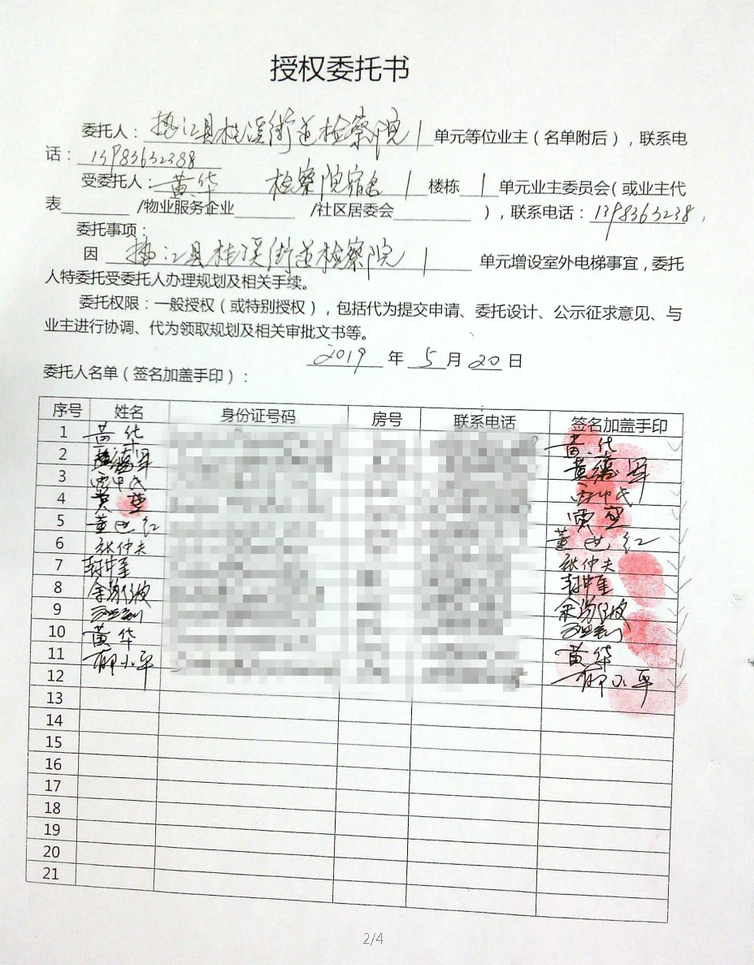 授权委托书
委托人：垫江县桂溪街道检察院1单元等位业主（名单附后），联系电
话：13983632388
受委托人：黄华 检察院宿舍1楼栋1单元业主委员会（或业主代
表 /物业服务企业 /社区居委会 ），联系电话：
委托事项：
因 垫江县桂溪街道检察院1 单元增设室外电梯事宜，委托
人特委托受委托人办理规划及相关手续。
委托权限：一般授权（或特别授权），包括代为提交申请、委托设计、公示征求意见、与
业主进行协调、代为领取规划及相关审批文书等。
2019 年 5 月 20 日
委托人名单（签名加盖手印）：
序号 姓名 身份证号码 房号 联系电话 签名加盖手印
1 黄华 黄华
2
3
4
5 董
6 张仲夫 张仲夫
7
8
9
10 黄华 黄华
11 小平 小平
12
13
14
15
16
17
18
19
20
21
2/4